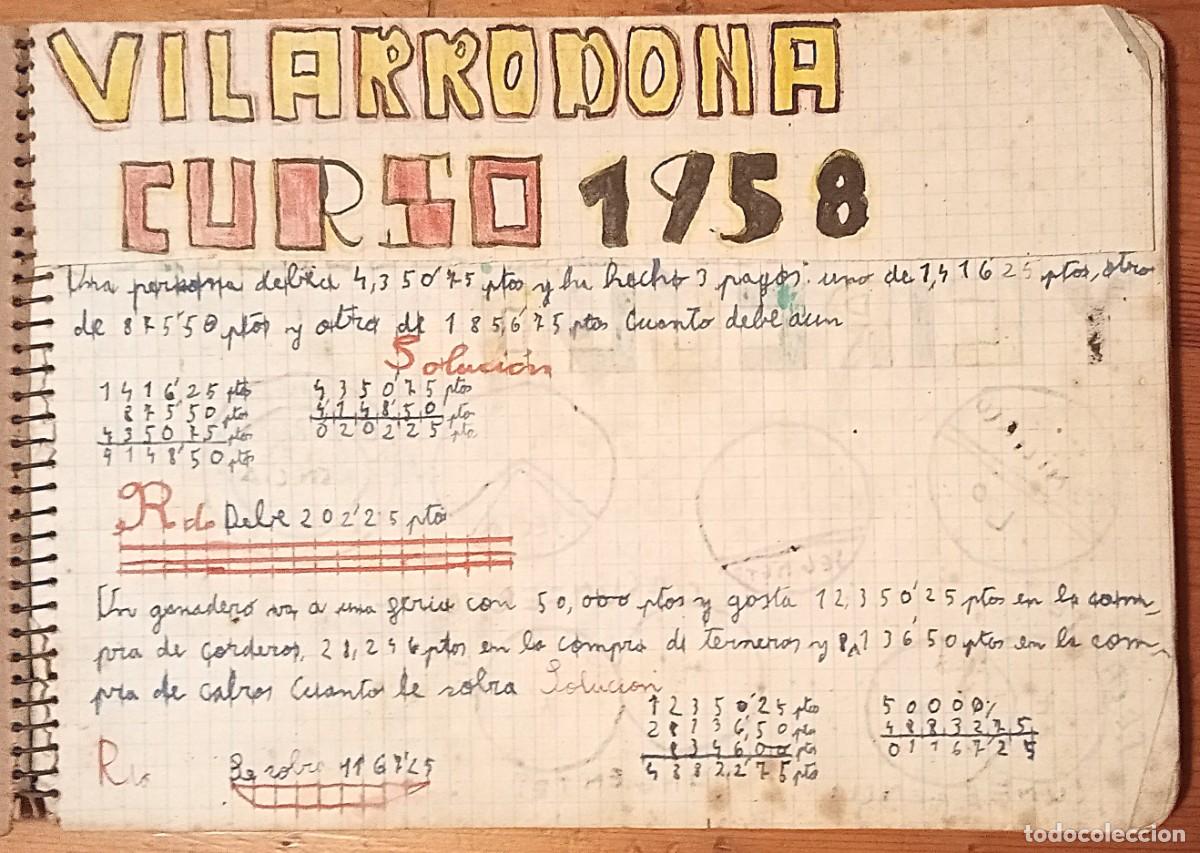 VILARRODONA
CURSO 1958
Una persona debia 4,350'75 ptas y ha hecho 3 pagos: uno de 1,416'25 ptas, otro
de 875'50 ptas y otro de 185,6'75 ptas Cuanto debe aun
Solución
1416'25 ptas
875'50 ptas
4350,75 ptas
4148'50 ptas
4,350'75 ptas
4,148'50 pta
0202'25 pta
R do Debe 202'25 ptas
Un ganadero va a una feria con 50,000 ptas y gasta 12,350'25 ptas en la com_
pra de corderos, 28,246 ptas en la compra de terneros y 8,136'50 ptas en la com_
pra de cabras Cuanto le sobra Solución
12350'25 ptas
28136,50 ptas
8346,00 ptas
43822'75 ptas
50000
4883275
0116725
Le sobra 1167'25
todocoleccion